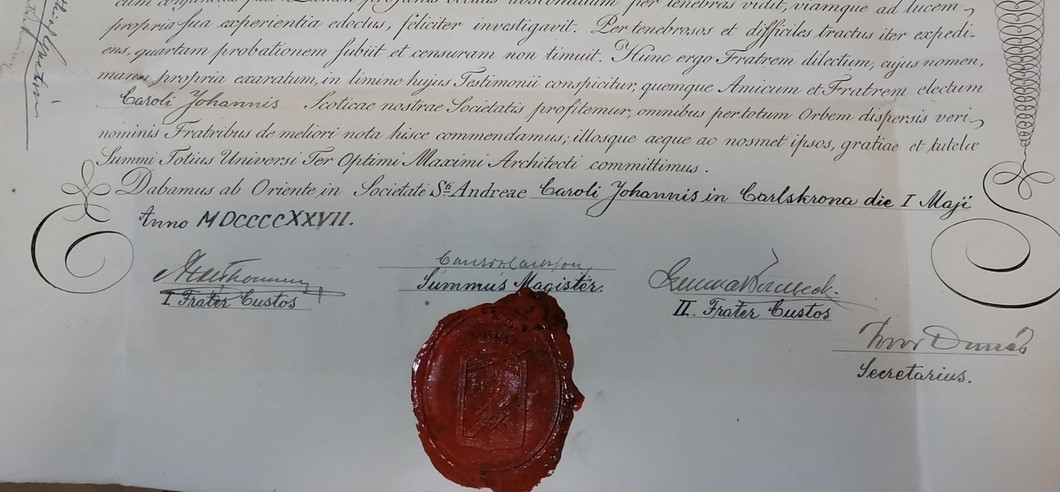 cum conjunctus per tenebras vidit, viamque ad lucem,
propria sua experientia edoctus, feliciter investigavit. Per tenebrosos et difficiles tractus iter expedi-
ens, quartam probationem subiit et censuram non timuit. Hunc ergo Fratrem dilectum, cujus nomen,
manu propria exaratum, in limine hujus Testimonii conspicitur, quemque Amicum et Fratrem electum
Caroli Johannis Scoticae nostrae Societatis profitemur, omnibus per totum Orbem dispersis veri
nominis Fratribus de meliori nota hisce commendamus; illosque aeque ac nosmet ipsos, gratiae et tutelae
Summi Totius Universi Ter Optimi Maximi Architecti committimus.
Dabamus ab Oriente in Societate S:t Andreae Caroli Johannis in Carlskrona die I Maji
Anno MDCCCCXXVII.
I Frater Custos
Summus Magister.
II. Frater Custos
Secretarius.